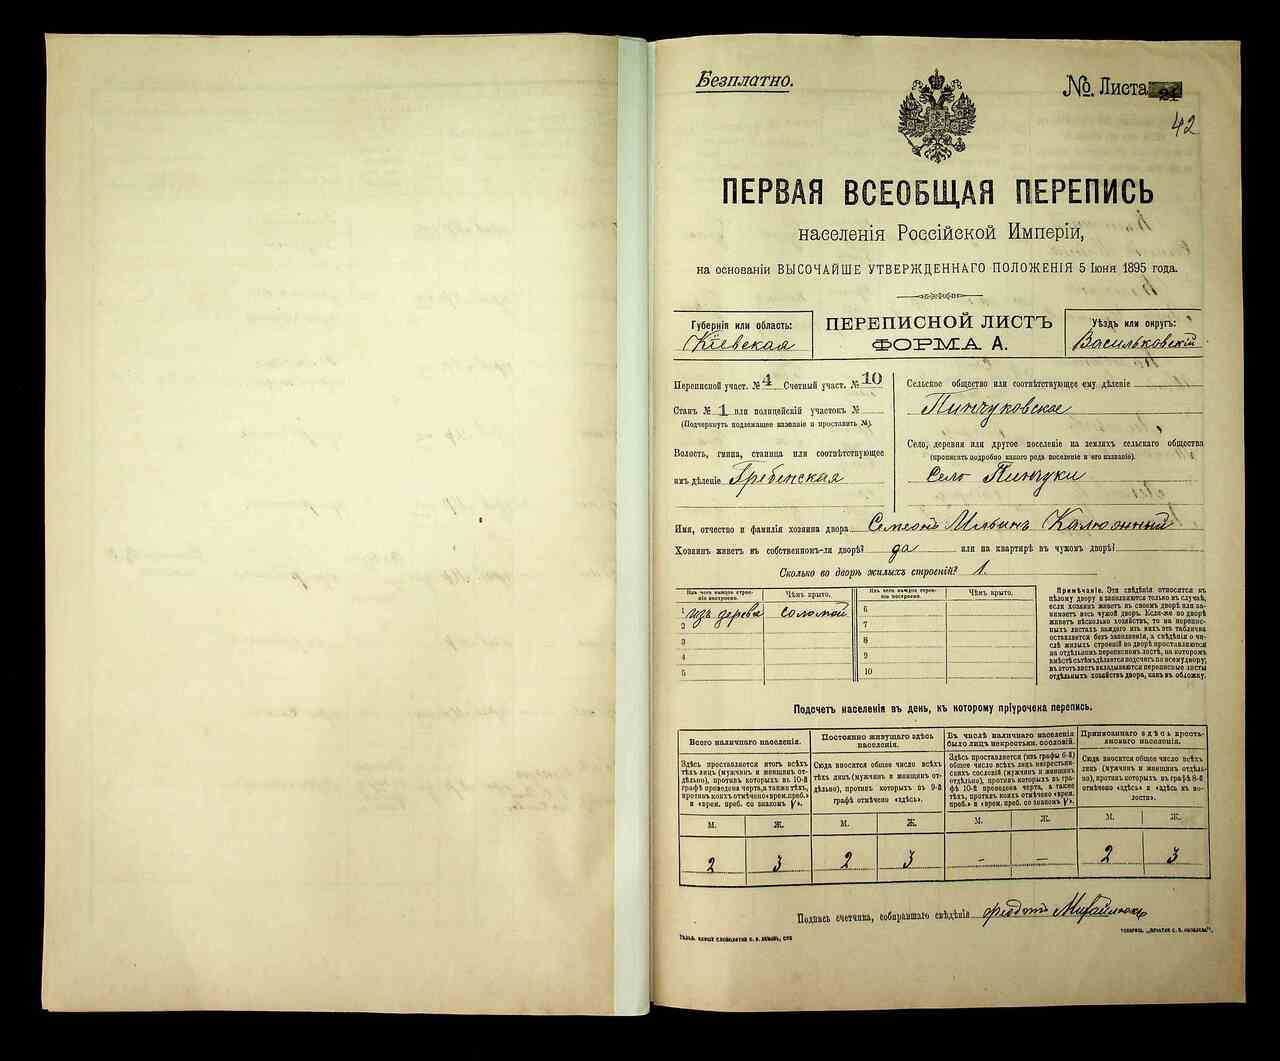 Безплатно.
№. Листа 21
42
ПЕРВАЯ ВСЕОБЩАЯ ПЕРЕПИСЬ
населенія Россійской Имперіи,
на основаніи ВЫСОЧАЙШЕ УТВЕРЖДЕННАГО ПОЛОЖЕНІЯ 5 Іюня 1895 года.
Губернія или область:
Кіевская
ПЕРЕПИСНОЙ ЛИСТЪ
ФОРМА А.
Уѣздъ или округъ:
Васильковскій
Переписной участ. № 4 Счетный участ. № 10
Станъ № 1 или полицейскій участокъ №
(Подчеркнуть подлежащее названіе и проставить №).
Волость, гмина, станица или соотвѣтствующее
имъ дѣленіе Гребенская
Сельское общество или соотвѣтствующее ему дѣленіе
Пинчуковское
Село, деревня или другое поселеніе на земляхъ сельскаго общества
(прописать подробно какого рода поселеніе и его названіе).
Село Пинчуки
Имя, отчество и фамилія хозяина двора Семеонъ Ильинъ Калюжный
Хозяинъ живетъ въ собственномъ-ли дворѣ? да или на квартирѣ въ чужомъ дворѣ?
Сколько во дворѣ жилыхъ строеній? 1.
Изъ чего каждое строе-
ніе построено.
Чѣмъ крыто.
Изъ чего каждое строе-
ніе построено.
Чѣмъ крыто.
1 изъ дерева соломой
2
3
4
5
6
7
8
9
10
Примѣчаніе. Эти свѣдѣнія относятся къ
цѣлому двору и заполняются только въ случаѣ,
если хозяинъ живетъ въ своемъ дворѣ или за-
нимаетъ весь чужой дворъ. Если-же во дворѣ
живетъ нѣсколько хозяйствъ, то на перепис-
ныхъ листахъ каждаго изъ нихъ эта табличка
оставляется безъ заполненія, а свѣдѣнія о чи-
слѣ жилыхъ строеній во дворѣ проставляются
на отдѣльномъ переписномъ листѣ, на которомъ
вмѣстѣ съ тѣмъ дѣлается подсчетъ по всему двору;
въ этотъ листъ вкладываются переписные листы
отдѣльныхъ хозяйствъ двора, какъ въ обложку.
Подсчетъ населенія въ день, къ которому пріурочена перепись.
Всего наличнаго населенія.
Здѣсь проставляется итогъ всѣхъ
тѣхъ лицъ (мужчинъ и женщинъ от-
дѣльно), противъ которыхъ въ 10-й
графѣ проведена черта, а также тѣхъ,
противъ коихъ отмѣчено «врем. преб.»
и «врем. преб. со знакомъ V».
Постоянно живущаго здѣсь
населенія.
Сюда вносится общее число всѣхъ
тѣхъ лицъ (мужчинъ и женщинъ от-
дѣльно), противъ которыхъ въ 9-й
графѣ отмѣчено «здѣсь».
Въ числѣ наличнаго населенія
было лицъ некрестьян. сословій.
Здѣсь проставляется (изъ графы 6-й)
общее число всѣхъ лицъ некрестьян-
скихъ сословій (мужчинъ и женщинъ
отдѣльно), противъ которыхъ въ гра-
фѣ 10-й проведена черта, а также
тѣхъ, противъ коихъ отмѣчено «врем.
преб.» и «врем. преб. со знакомъ V».
Приписаннаго здѣсь кресть-
янскаго населенія.
Сюда вносится общее число всѣхъ
лицъ (мужчинъ и женщинъ отдѣль-
но), противъ которыхъ въ графѣ 8-й
отмѣчено «здѣсь» и «здѣсь къ во-
лости».
М. Ж. М. Ж. М. Ж. М. Ж.
2 3 2 3 - - 2 3
Подпись счетчика, собиравшаго свѣдѣнія Феодотъ Михайлюкъ